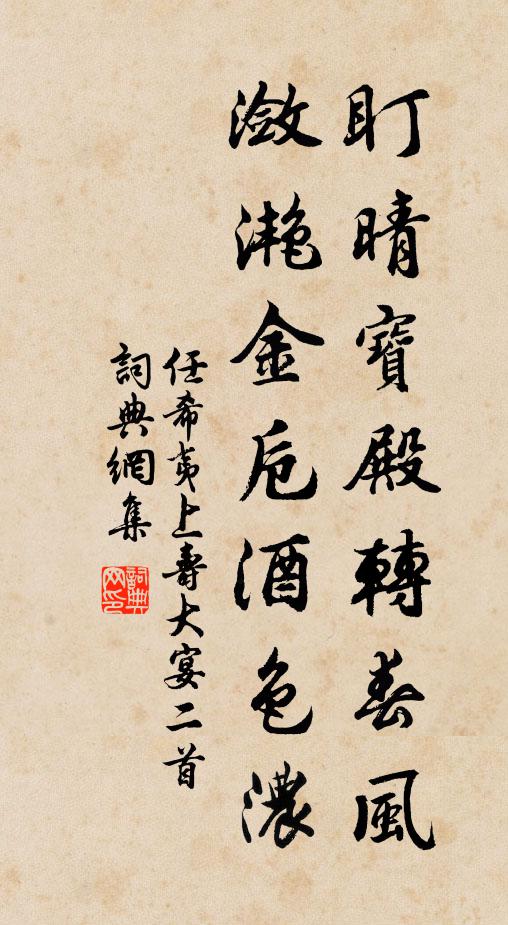 盯晴寶殿轉春風
瀲灔金卮酒色濃
任希夷上壽大宴二首
詞典網集
詞典网印